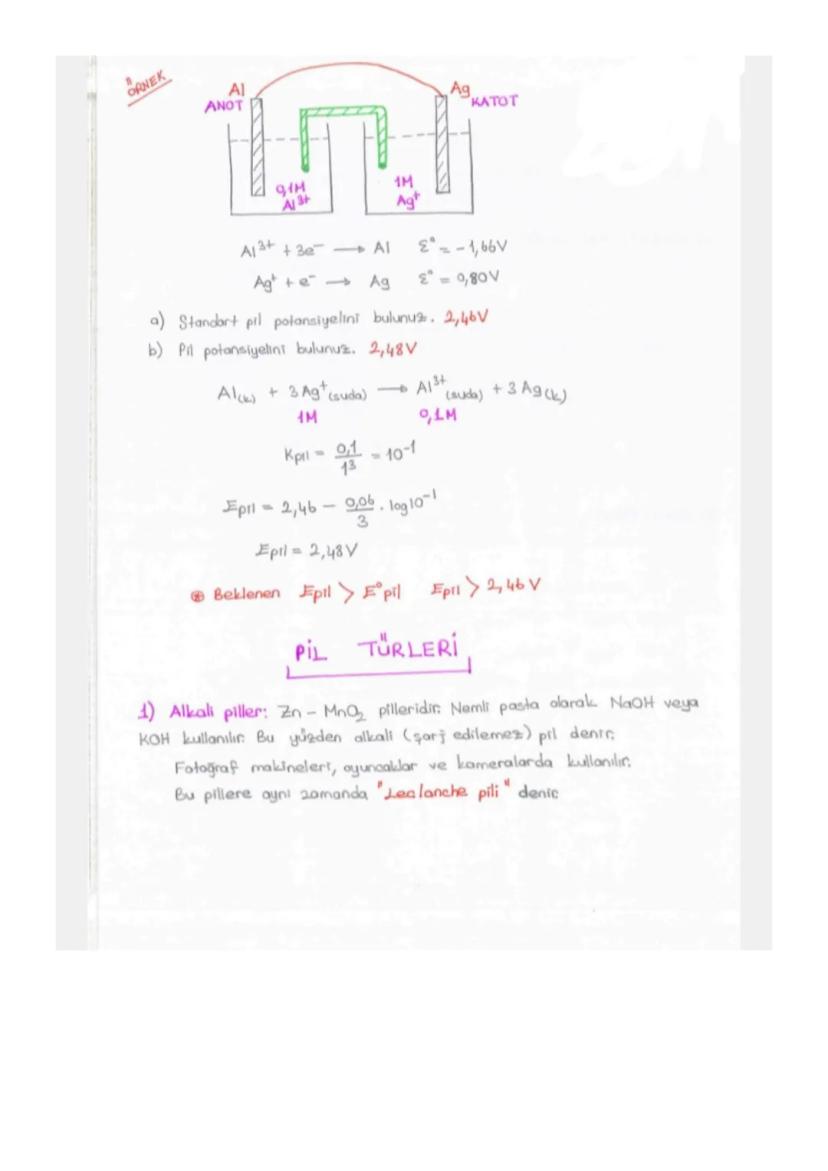 ÖRNEK
Al
ANOT
Ag
KATOT
0,1M
Al³⁺
1M
Ag⁺
Al³⁺ + 3e⁻ → Al ℰ° = -1,66V
Ag⁺ + e⁻ → Ag ℰ° = 0,80V
a) Standart pil potansiyelini bulunuz. 2,46V
b) Pil potansiyelini bulunuz. 2,48V
Al(k) + 3Ag⁺(suda) → Al³⁺(suda) + 3Ag(k)
1M 0,1M
Kpil = 0,1/1³ = 10⁻¹
Ɛpil = 2,46 - 0,06/3 . log10⁻¹
Ɛpil = 2,48V
⊛ Beklenen Ɛpil > E°pil Ɛpil > 2,46V
PİL TÜRLERİ
1) Alkali piller: Zn - MnO₂ pilleridir. Nemli pasta olarak NaOH veya
KOH kullanılır. Bu yüzden alkali (şarj edilemez) pil denir.
Fotoğraf makineleri, oyuncaklar ve kameralarda kullanılır.
Bu pillere aynı zamanda "Leclanche pili" denir.